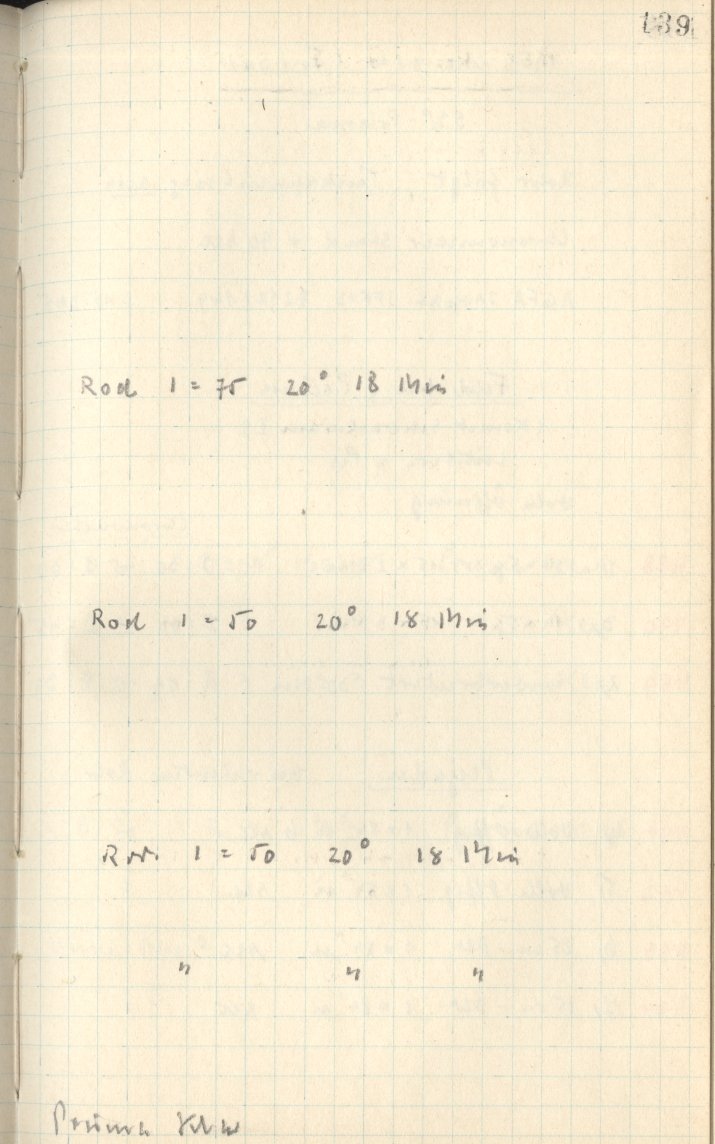 139
Rod 1 = 75 20° 18 Min
Rod 1 = 50 20° 18 Min
Rod. 1 = 50 20° 18 Min
" " "
Prima